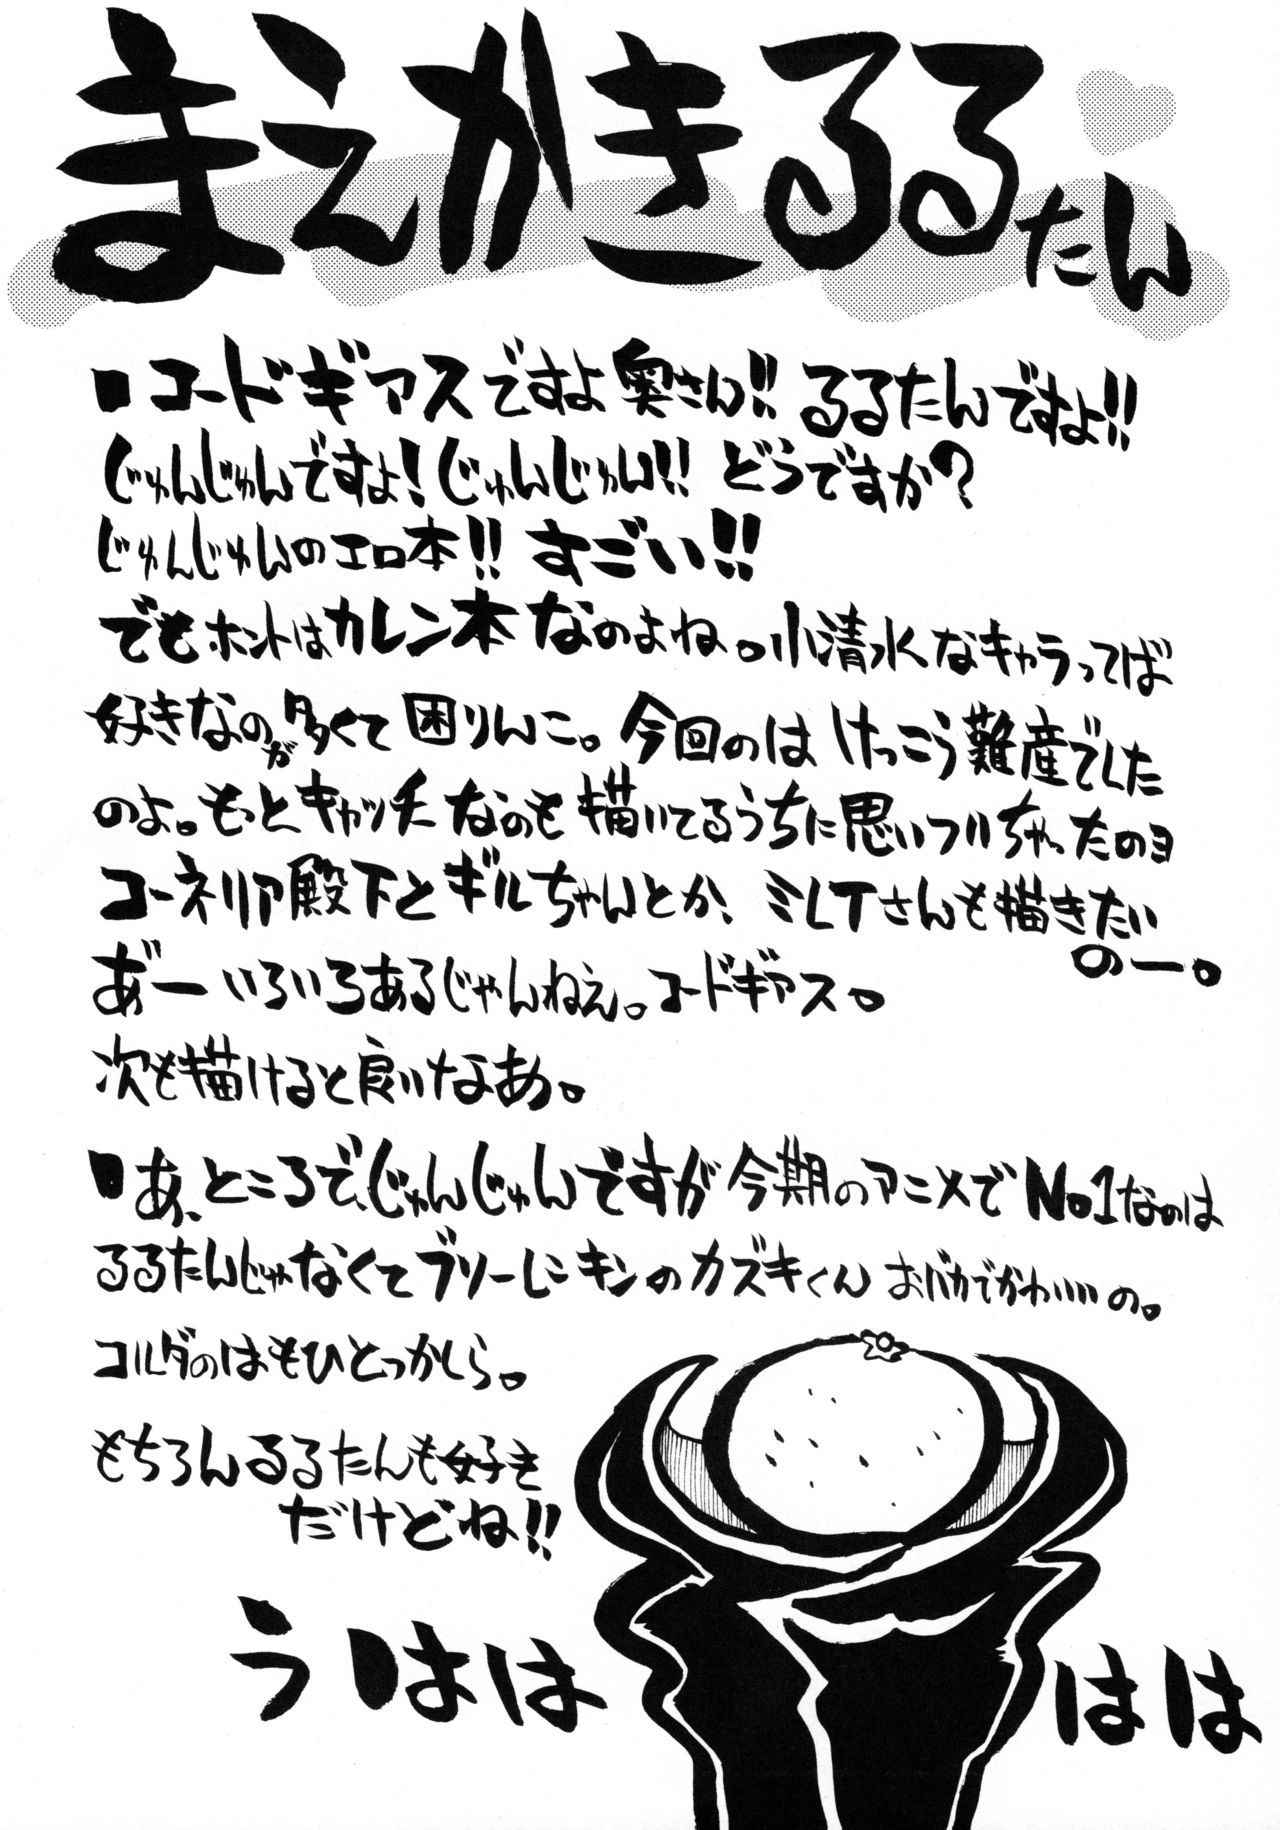 まえかきるるたん
■コードギアスですよ奥さん!! るるたんですよ!!
じゅんじゅんですよ! じゅんじゅん!! どうですか?
じゅんじゅんのエロ本!! すごい!!
でもホントはカレン本なのよね。小清水なキャラってば
好きなのが多くて困りんこ。今回のはけっこう難産でした
のよ。もっとキャッチなのも描いてるうちに思いついちゃったのヨ
コーネリア殿下とギルちゃんとか、ミレイさんも描きたい
のー。
あ゛ーいろいろあるじゃんねえ。コードギアス。
次も描けると良いなあ。
■あ、ところで、じゅんじゅんですが今期のアニメでNo.1なのは
るるたんじゃなくてブリーレンキンのカズキくん おバカでかわいいの。
コルダのはもひとつかしら。
もちろんるるたんも好き
だけどね!!
うはは
はは